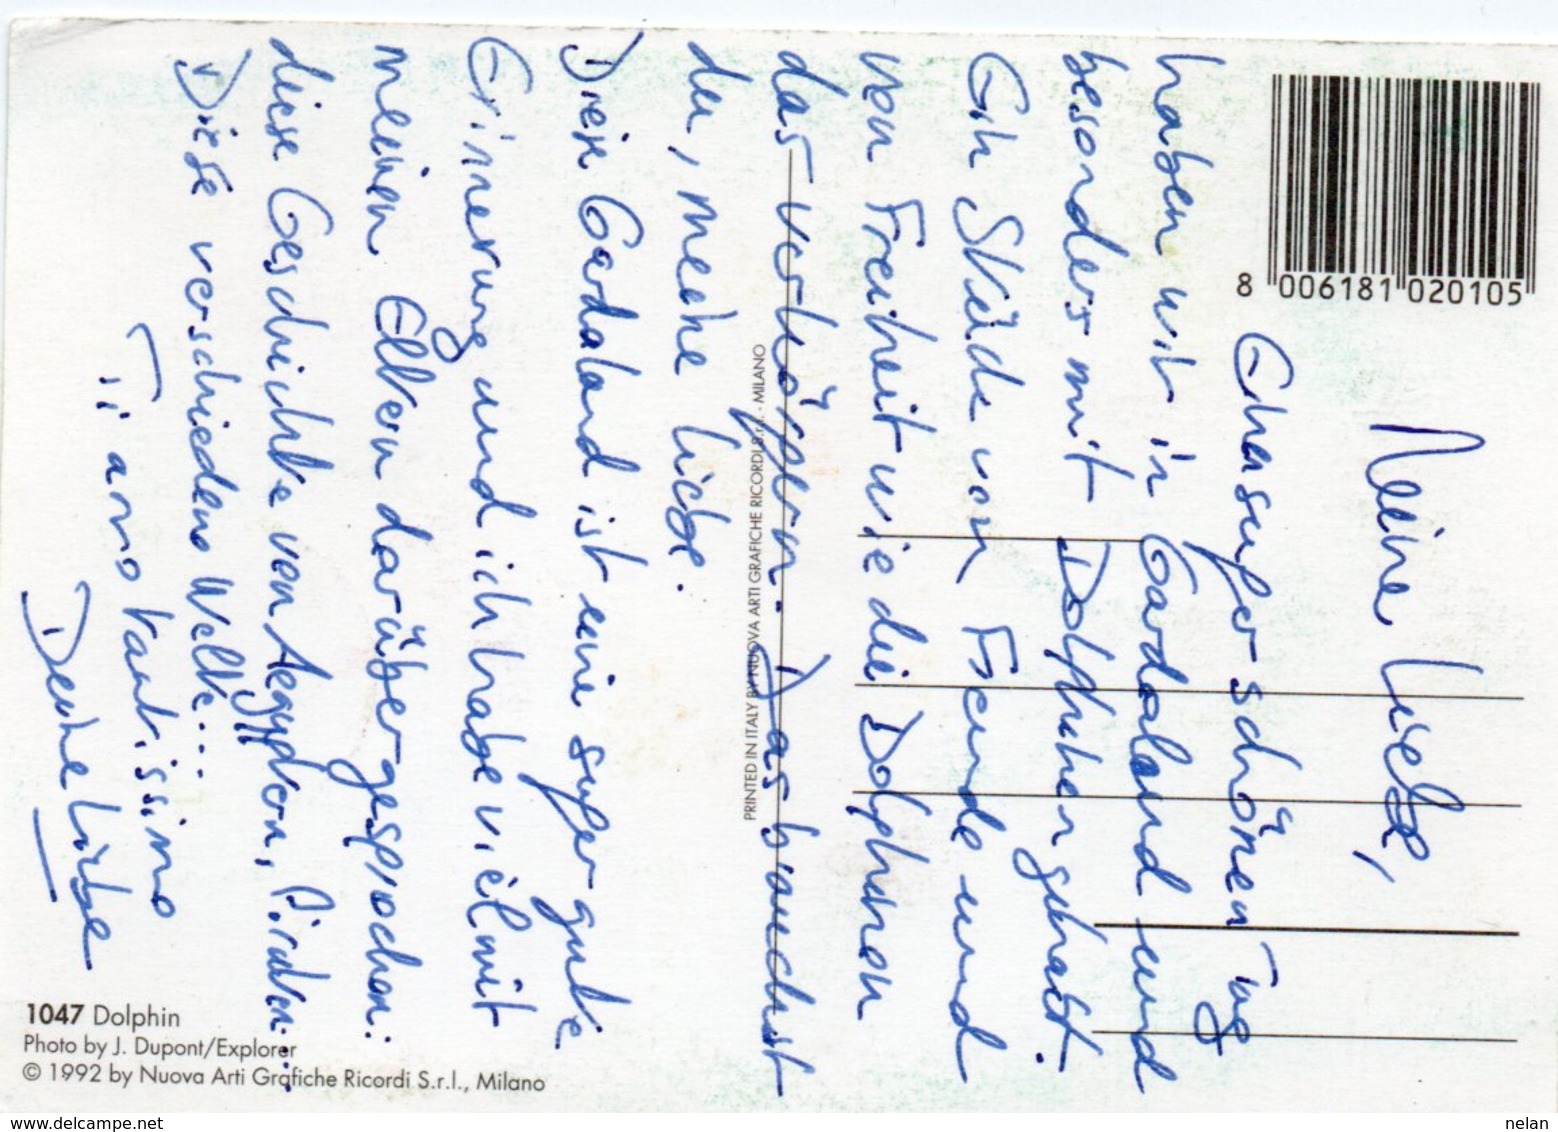 Meine Liebe,
Ein superschönen Tag
haben wir in Gardaland und
besonders mit Dolphinen gehabt.
Ein Stück von Freude und
von Freiheit wie die Dolphinen
das verkörpern. Das brauchst
du, meine liebe.
Diese Gardaland ist eine super gute
Erinnerung und ich habe viel mit
meinen Eltern darüber gesprochen:
diese Geschichte von Aegÿptern, Piraten...
Diese verschiedene Welte...
Ti amo tantissimo
Deine Liebe
8 006181 020105
PRINTED IN ITALY BY NUOVA ARTI GRAFICHE RICORDI S.r.l. - MILANO
1047 Dolphin
Photo by J. Dupont/Explorer
© 1992 by Nuova Arti Grafiche Ricordi S.r.l., Milano
www.delcampe.net
nelan